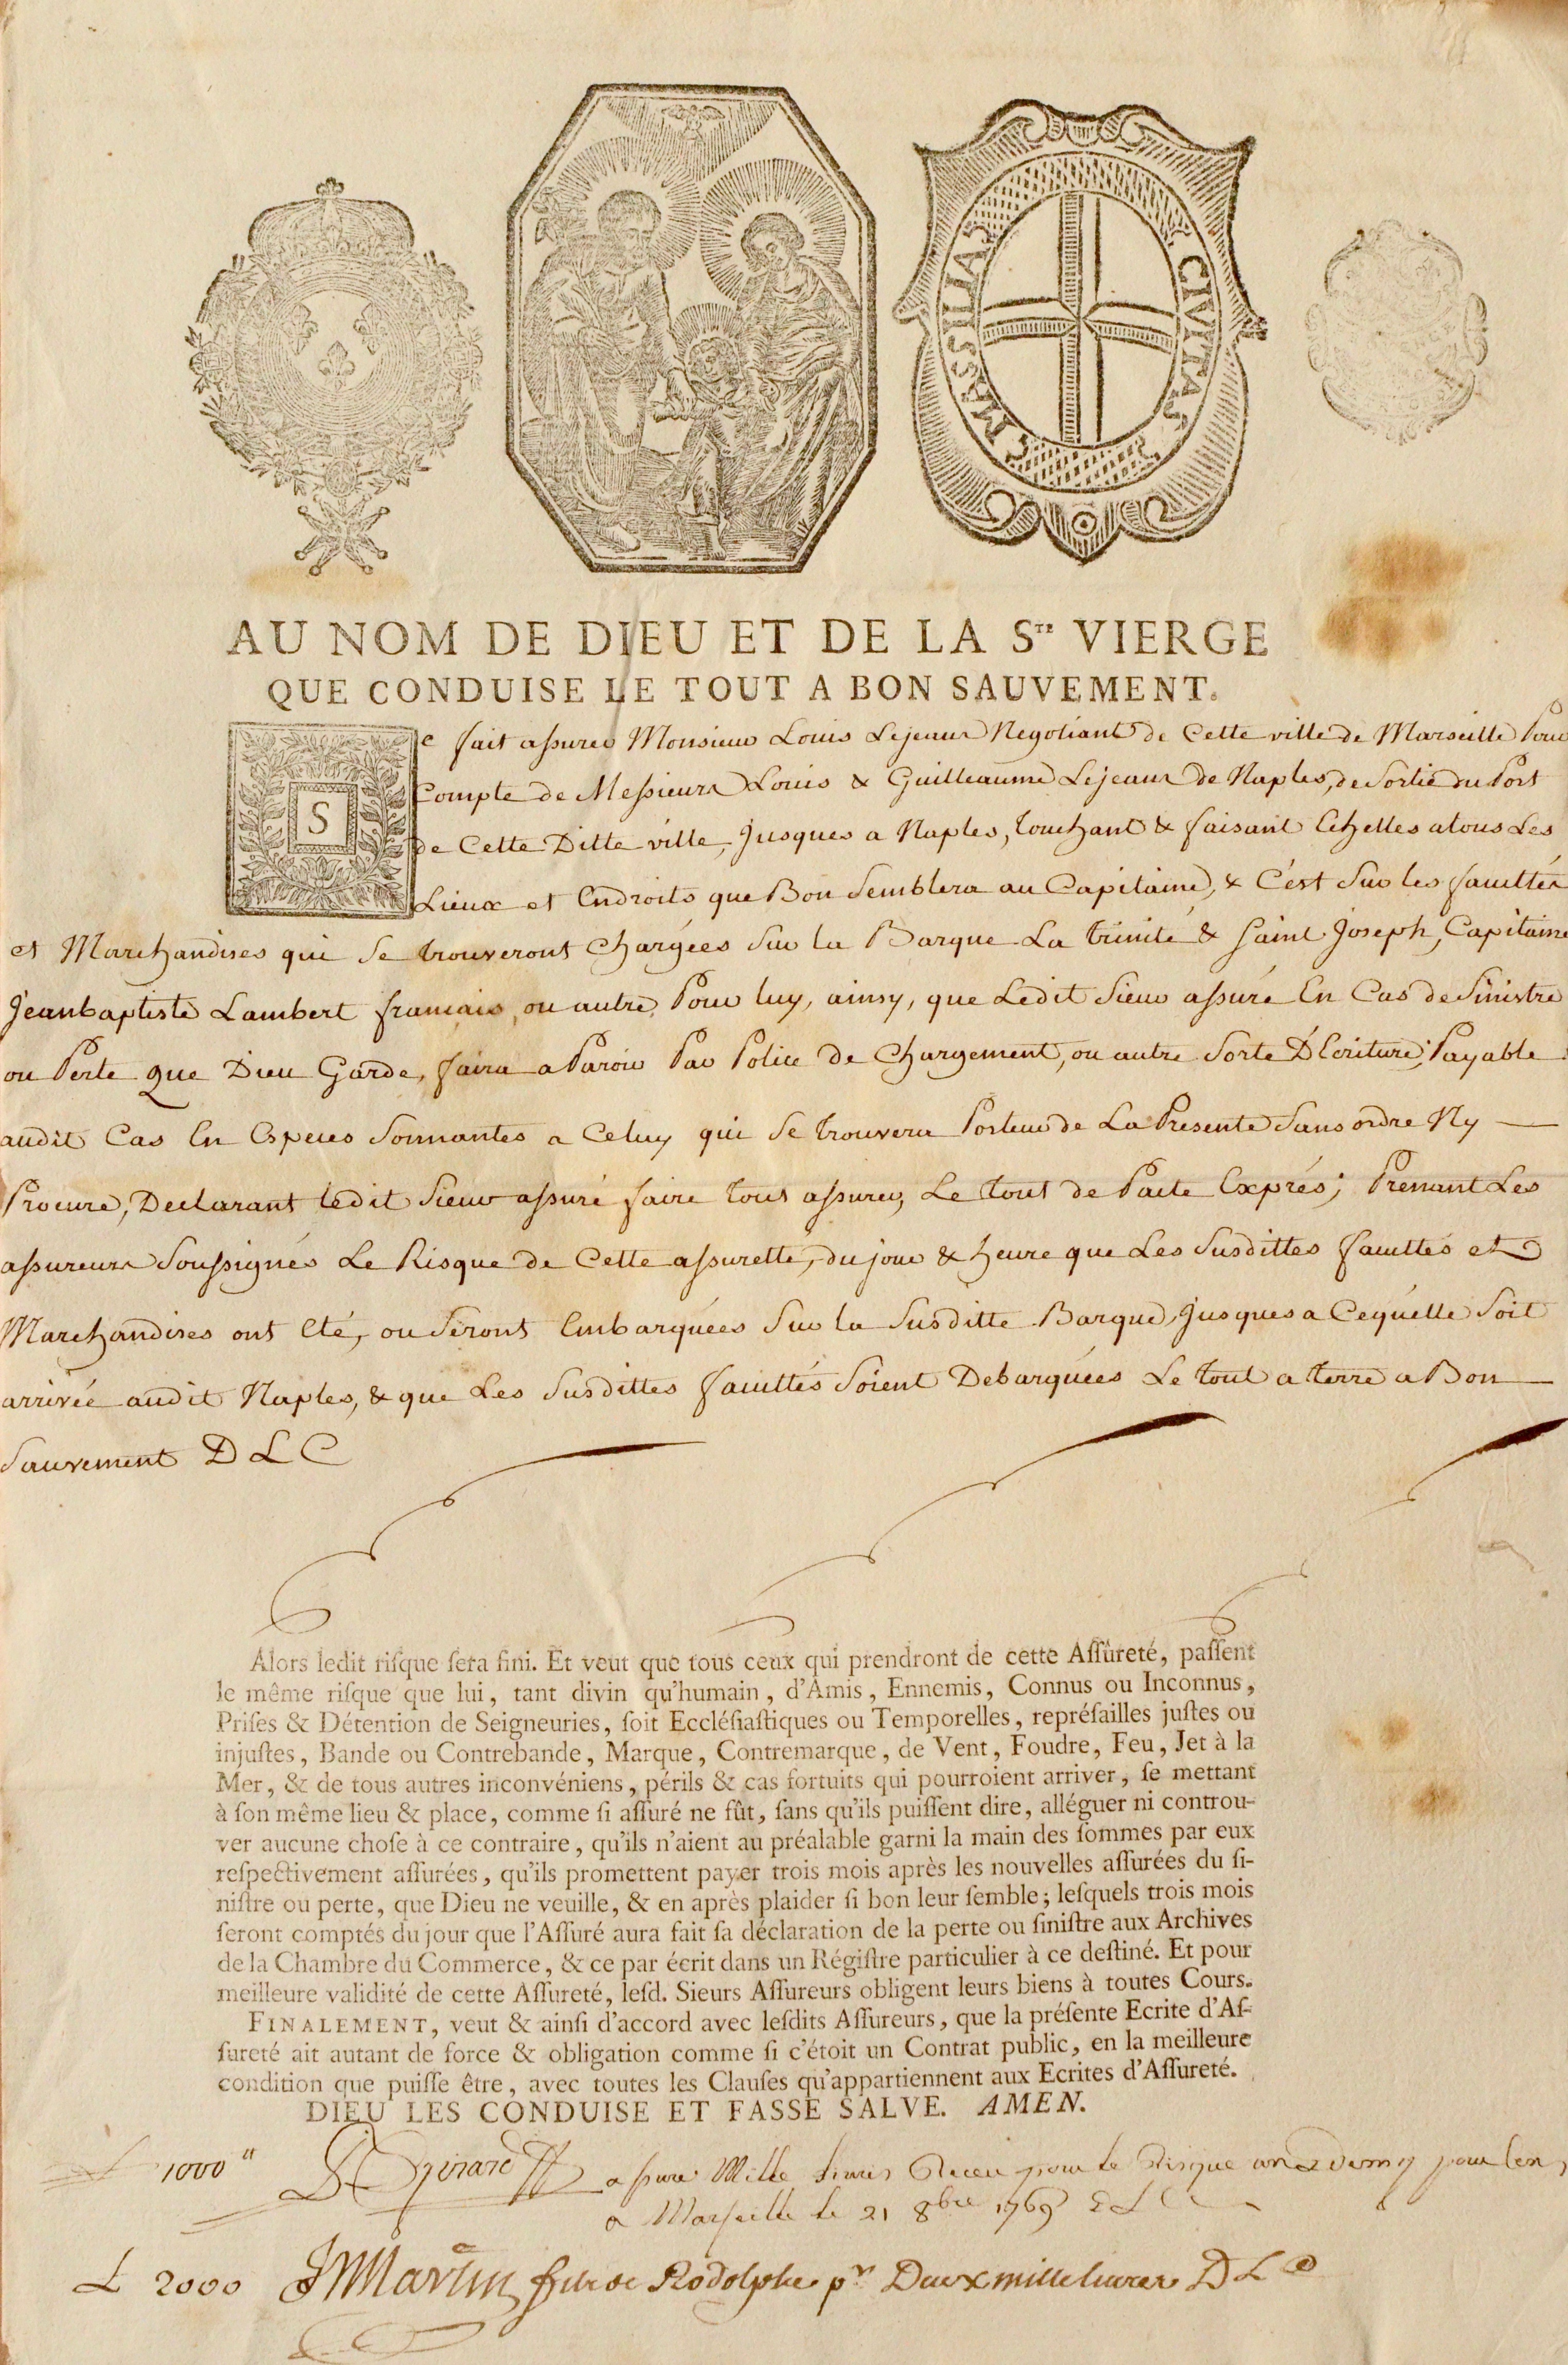 CIVITAS MASSILIAS
AU NOM DE DIEU ET DE LA Sᵀᴱ VIERGE
QUE CONDUISE LE TOUT A BON SAUVEMENT.
Se fait assurer Monsieur Louis Lejeans Negotiant de Cette ville de Marseille Pour
Compte de Messieurs Louis & Guilleaume Lejeans de Naples, de Sortie du Port
de Cette Ditte ville, Jusques a Naples, touchant & faisant Echelles a tous Les
Lieux et Endroits que Bon Semblera au Capitaine, & C'est Sur les facultés
et Marchandises qui Se trouveront Chargées Sur la Barque La trinité & Saint Joseph, Capitaine
Jeanbaptiste Lambert français, ou autre Pour luy, ainsy, que Ledit Sieur assuré En Cas de Sinistre
ou Perte que Dieu Garde, faira a Paroir Par Police de Chargement, ou autre Sorte D'Ecriture, Payable
audit Cas En Especes Sonnantes a Celuy qui Se trouvera Porteur de La Presente Sans ordre Ny
Procure, Declarant ledit Sieur assuré faire tout assurer, Le tout de Pacte Exprés; Prenant Les
assureurs Soussignés Le Risque de Cette assuretté, du jour & heure que Les Susdittes facultés et
Marchandises ont Eté, ou Seront Embarquées Sur la Susditte Barque, Jusques a Cequ'elle Soit
arrivée audit Naples, & que Les Susdittes facultés Soient Debarquées Le tout a terre a Bon
Sauvement D L C
Alors ledit risque sera fini. Et veut que tous ceux qui prendront de cette Assûreté, passent
le même risque que lui, tant divin qu'humain, d'Amis, Ennemis, Connus ou Inconnus,
Prises & Détention de Seigneuries, soit Ecclésiastiques ou Temporelles, représailles justes ou
injustes, Bande ou Contrebande, Marque, Contremarque, de Vent, Foudre, Feu, Jet à la
Mer, & de tous autres inconvéniens, périls & cas fortuits qui pourroient arriver, se mettant
à son même lieu & place, comme si assuré ne fût, sans qu'ils puissent dire, alléguer ni controu-
ver aucune chose à ce contraire, qu'ils n'aient au préalable garni la main des sommes par eux
respectivement assurées, qu'ils promettent payer trois mois après les nouvelles assurées du si-
nistre ou perte, que Dieu ne veuille, & en après plaider si bon leur semble; lesquels trois mois
seront comptés du jour que l'Assuré aura fait sa déclaration de la perte ou sinistre aux Archives
de la Chambre du Commerce, & ce par écrit dans un Régistre particulier à ce destiné. Et pour
meilleure validité de cette Assureté, lesd. Sieurs Assureurs obligent leurs biens à toutes Cours.
FINALEMENT, veut & ainsi d'accord avec lesdits Assureurs, que la présente Ecrite d'As-
sureté ait autant de force & obligation comme si c'étoit un Contrat public, en la meilleure
condition que puisse être, avec toutes les Clauses qu'appartiennent aux Ecrites d'Assureté.
DIEU LES CONDUISE ET FASSE SALVE. AMEN.
£ 1000 assure Mille livres Receu pour le Risque un & demy pour cen
a Marseille le 21 8bre 1769 D L C
£ 2000 JMartin fils de Rodolphe pr Deux mille livres D L C